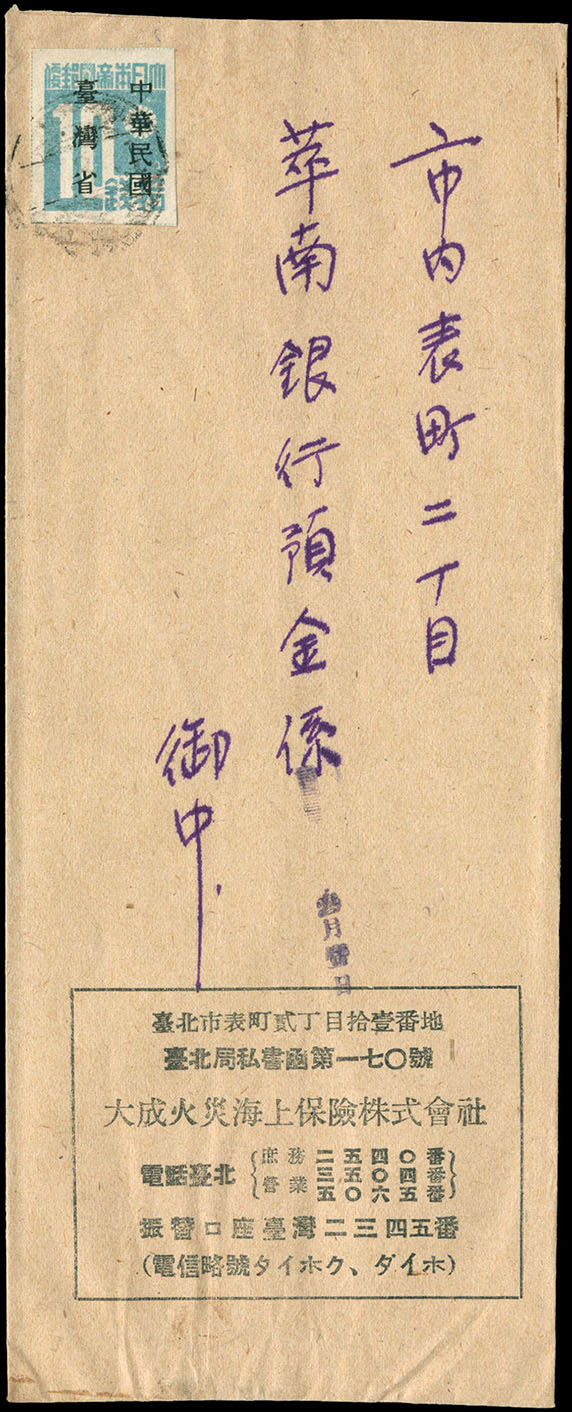 市内表町二丁目
華南銀行預金係
御中
大日本帝國郵便
10
拾錢
中華民國
臺灣省
臺北市表町貳丁目拾壹番地
臺北局私書函第一七〇號
大成火災海上保險株式會社
電話臺北
庶務 二五四〇番
三五〇四番
營業 五〇六五番
振替口座臺灣二三四五番
(電信略號タイホク、ダイホ)